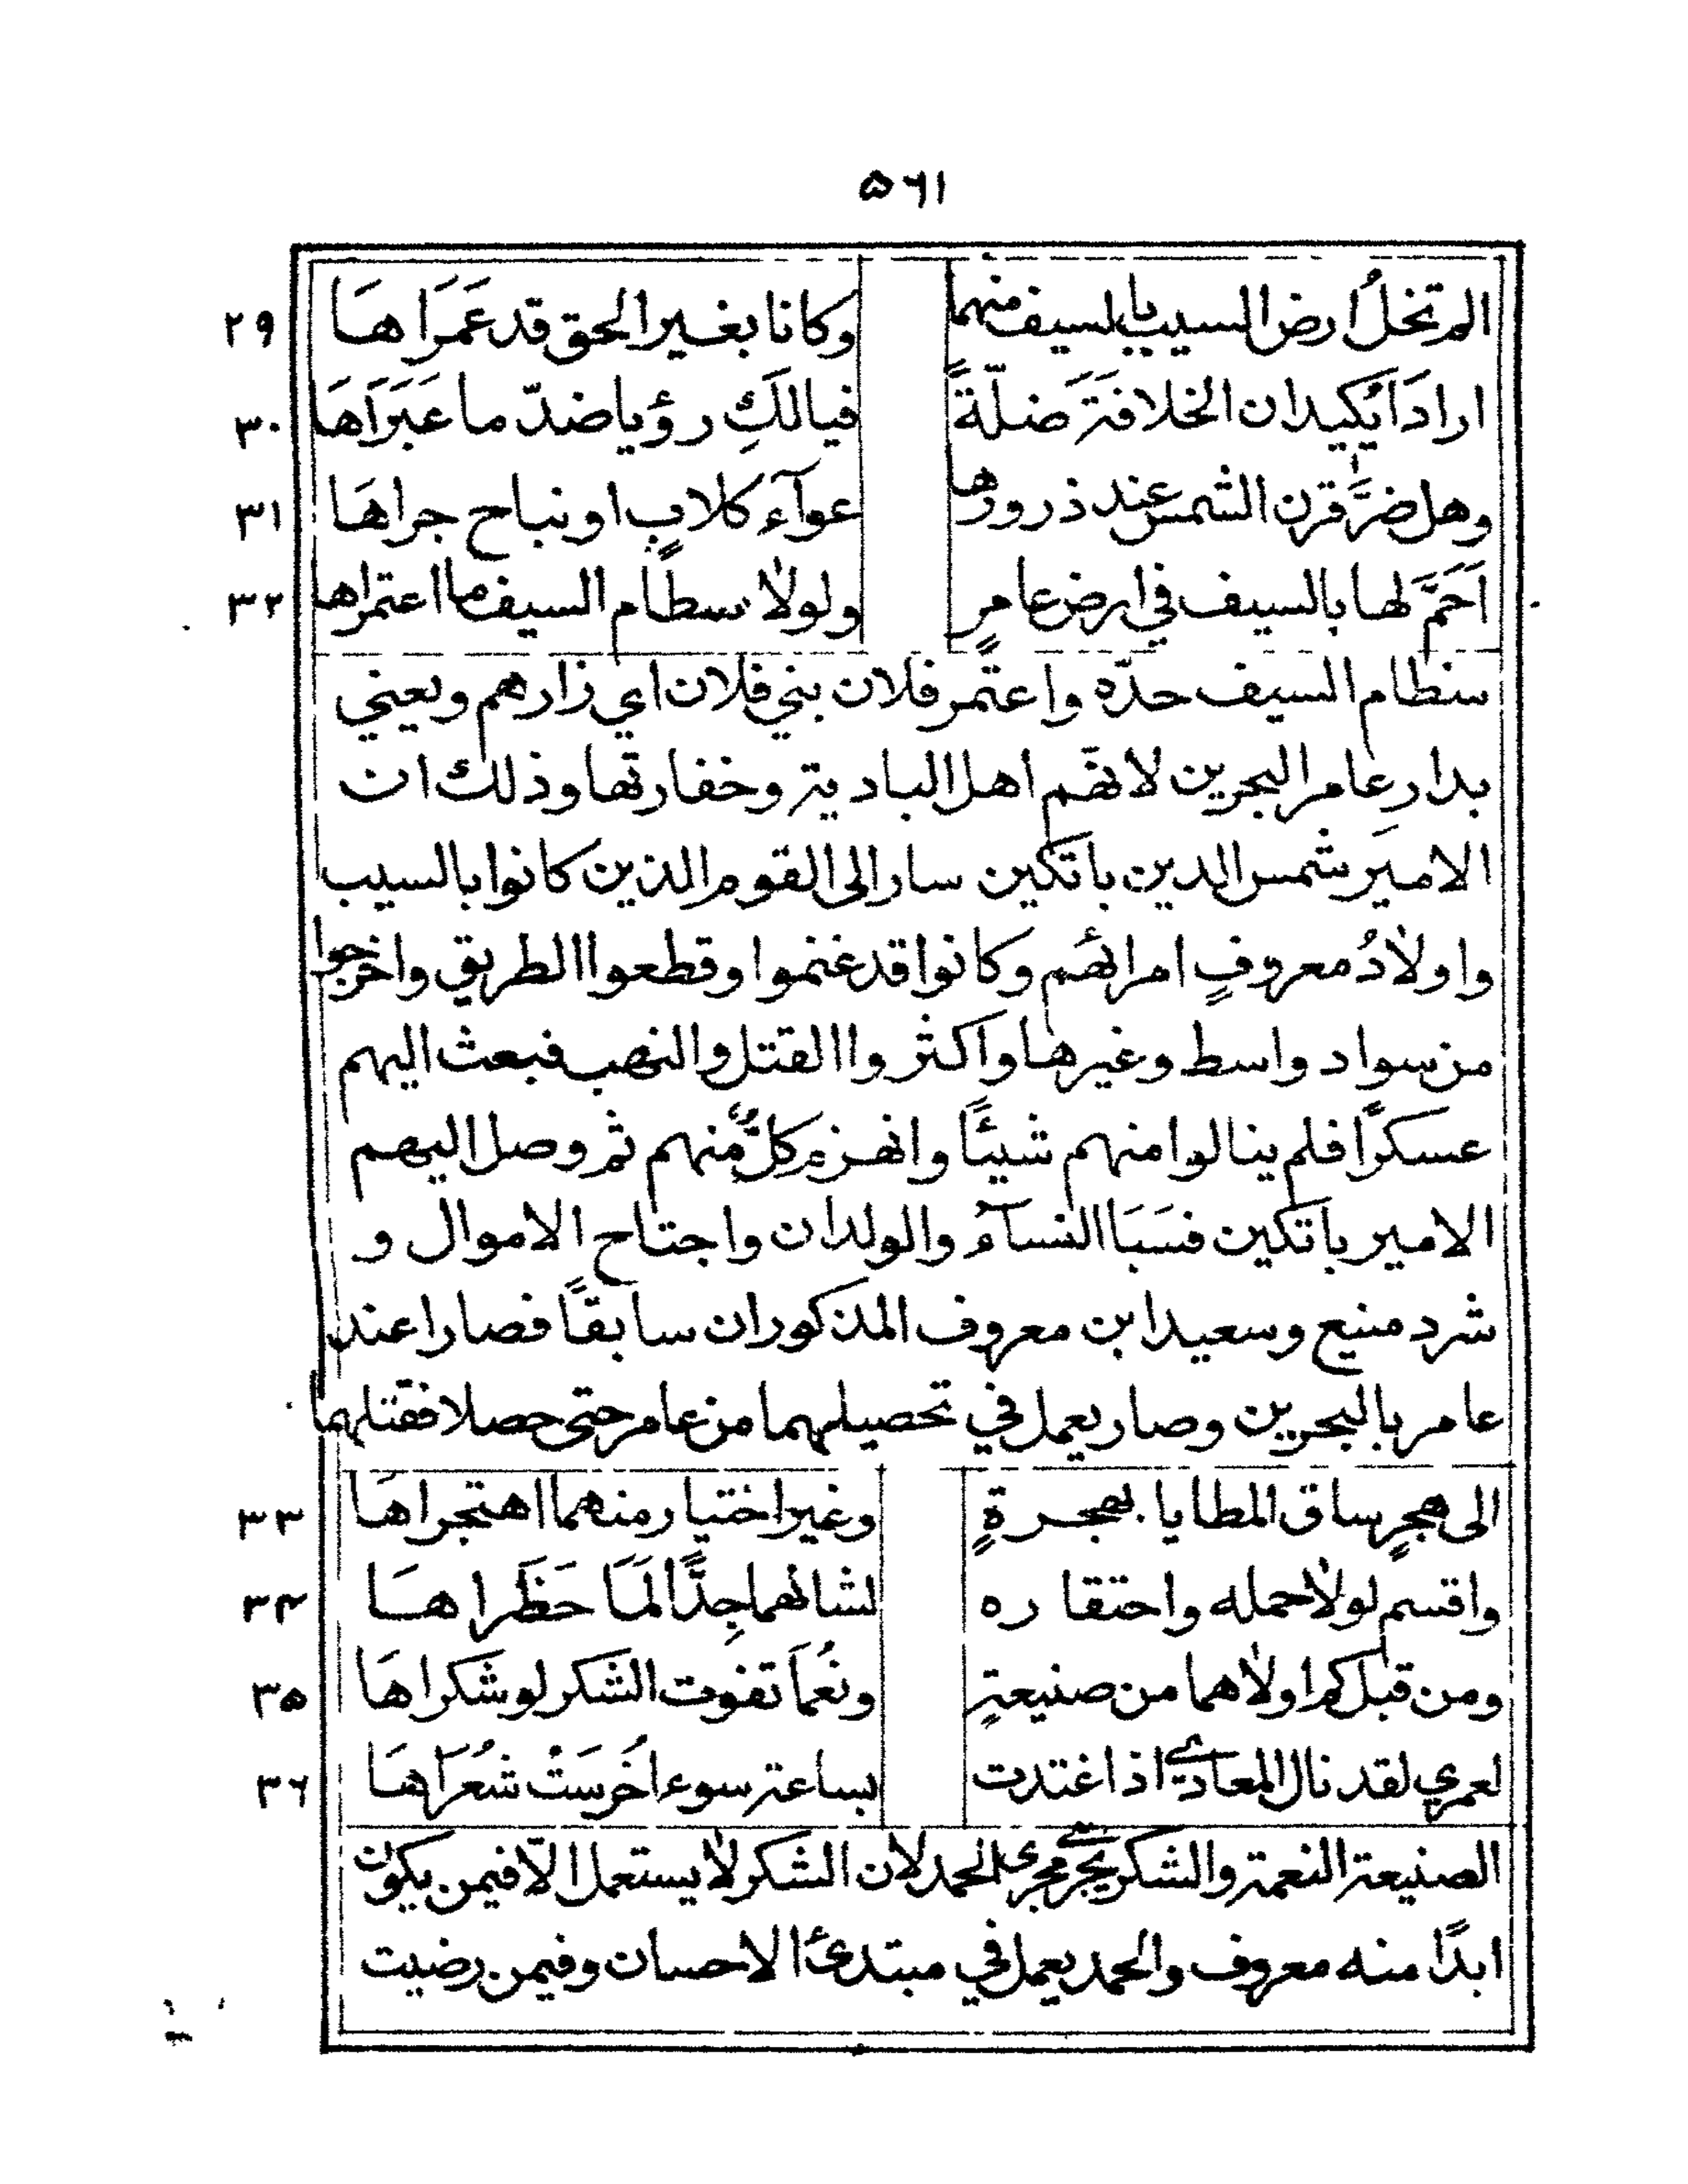 ۵۶۱
الم تخلُ ارض السيب بالسيف منهما وكانا بغير الحق قد عَمَرَاهَا ۲۹
ارادَا يُكيدان الخلافَةَ ضلّةً فيالكِ رؤيا ضدّ ما عَبَرَاهَا ۳۰
وهل ضرَّ قرن الشمس عند ذرورها عوآء كلابٍ او نباح جراهَا ۳۱
اَحَمَّ لها بالسيف في ارض عامرٍ ولولا سطام السيف ما اعتمراها ۳۲
سطام السيف حدّه واعتمر فلان بني فلان اي زارهم ويعني
بدارِ عامر البحرين لانهّم اهل البادية وخفارتها وذلك ان
الاميَر شمس الدين باتكين سار الى القوم الذين كانوا بالسيب
واولادُ معروفٍ امرائهُم وكانوا قد غنموا وقطعوا الطريق واخرجوا
من سواد واسط وغيرها واكثروا القتل والنهب فبعث اليهم
عسكرًا فلم ينالوا منهم شيئًا وانهزم كلٌّ منهم ثم وصل اليهم
الامير باتكين فسَبَا النسآءُ والولدان واجتاح الاموال و
شرد منيع وسعيد ابن معروف المذكوران سابقًا فصارا عند
عامر بالبحرين وصار يعمل في تحصيلهما من عامر حتى حصلا فقتلهما
الى هجرٍ ساق المطايا بهجرةٍ وغير اختيار منهما اهتجراهَا ۳۳
واقسم لولا حمله واحتقاره لشانهما جِدًّا لَمَا حَظَراهَا ۳۴
ومن قبل كم اولاهما من صنيعةٍ ونُعمَا تفوت الشكر لو شكراهَا ۳۵
لعمري لقد نال المعادي اذا اغتدت بساعة سوء اَخرسَتْ شُعَرَاهَا ۳۶
الصنيعة النعمة والشكر يجري مجرى الحمد لان الشكر لا يستعمل الّا فيمن يكون
ابدًا منه معروف والحمد يعمل في مبتدئ الاحسان وفيمن رضيت